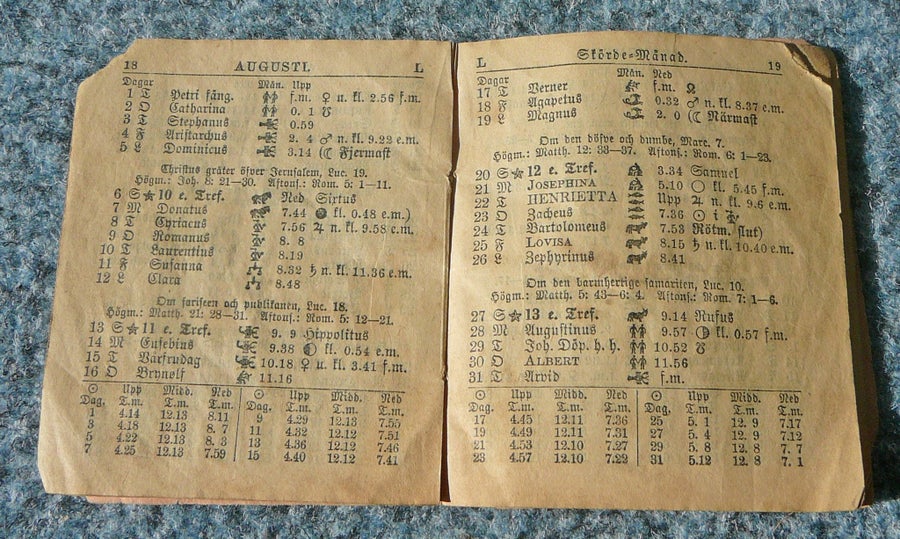 18 AUGUSTI. L
Dagar Mån. Upp
1 T Petri fäng. f.m. ♀ u. kl. 2.56 f.m.
2 O Catharina 0. 1 ☋
3 T Stephanus 0.59
4 F Aristarchus 2. 4 ♂ n. kl. 9.22 e.m.
5 L Dominicus 3.14 (☾ Fjermast
Christus gråter öfver Jerusalem, Luc. 19.
Högm.: Joh. 8: 21—30. Aftons.: Rom. 5: 1—11.
6 S ★ 10 e. Tref. Ned Sixtus
7 M Donatus 7.44 ● kl. 0.48 e.m.)
8 T Cyriacus 7.56 ♃ n. kl. 9.58 e.m.
9 O Romanus 8. 8
10 T Laurentius 8.19
11 F Susanna 8.32 ♄ n. kl. 11.36 e.m.
12 L Clara 8.48
Om fariseen och publikanen, Luc. 18.
Högm.: Matth. 21: 28—31. Aftons.: Rom. 5: 12—21.
13 S ★ 11 e. Tref. 9. 9 Hippolitus
14 M Eusebius 9.38 ◐ kl. 0.54 e.m.
15 T Vårfrudag 10.18 ♀ u. kl. 3.41 f.m.
16 O Brynolf 11.16
☉ Upp Midd. Ned ☉ Upp Midd. Ned
Dag. T.m. T.m. T.m. Dag. T.m. T.m. T.m.
1 4.14 12.13 8.11 9 4.29 12.13 7.55
3 4.18 12.13 8. 7 11 4.32 12.12 7.51
5 4.22 12.13 8. 3 13 4.36 12.12 7.46
7 4.25 12.13 7.59 15 4.40 12.12 7.41
L Skörde-Månad. 19
Dagar Mån. Ned
17 T Verner f.m. ☊
18 F Agapetus 0.32 ♂ n. kl. 8.37 e.m.
19 L Magnus 2. 0 (☾ Närmast
Om den döfve och dumbe, Marc. 7.
Högm.: Matth. 12: 33—37. Aftons.: Rom. 6: 1—23.
20 S ★ 12 e. Tref. 3.34 Samuel
21 M JOSEPHINA 5.10 ○ kl. 5.45 f.m.
22 T HENRIETTA Upp ♃ n. kl. 9.6 e.m.
23 O Zacheus 7.36 ☉ i
24 T Bartolomeus 7.53 Rötm. slut)
25 F LOVISA 8.15 ♄ n. kl. 10.40 e.m.
26 L Zephyrinus 8.41
Om den barmhertige samariten, Luc. 10.
Högm.: Matth. 5: 43—6: 4. Aftons.: Rom. 7: 1—6.
27 S ★ 13 e. Tref. 9.14 Rufus
28 M Augustinus 9.57 ◑ kl. 0.57 f.m.
29 T Joh. Döp. h. h. 10.52 ☋
30 O ALBERT 11.56
31 T Arvid f.m.
☉ Upp Midd. Ned ☉ Upp Midd. Ned
Dag. T.m. T.m. T.m. Dag. T.m. T.m. T.m.
17 4.45 12.11 7.36 25 5. 1 12. 9 7.17
19 4.49 12.11 7.31 27 5. 4 12. 9 7.12
21 4.53 12.10 7.27 29 5. 8 12. 8 7. 7
23 4.57 12.10 7.22 31 5.12 12. 8 7. 1